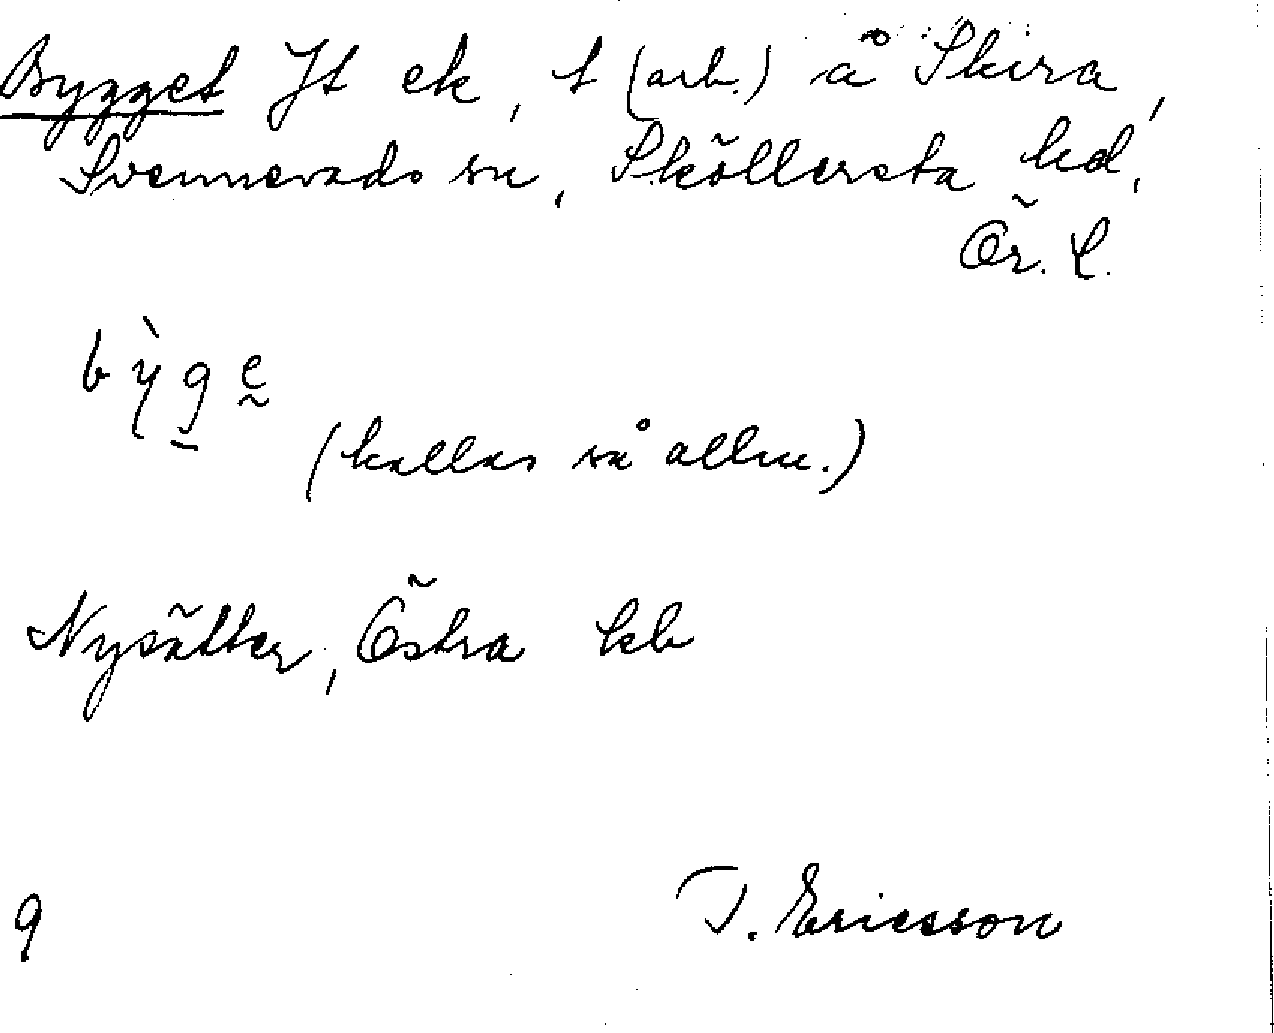 Bygget Jt ek, t (arb.) å Skira,
Svennevads sn, Sköllersta hd,
Ör. L.
bỳg̱ḛ
(kallas så allm.)
Nysätter, Östra kb
9
T. Ericsson